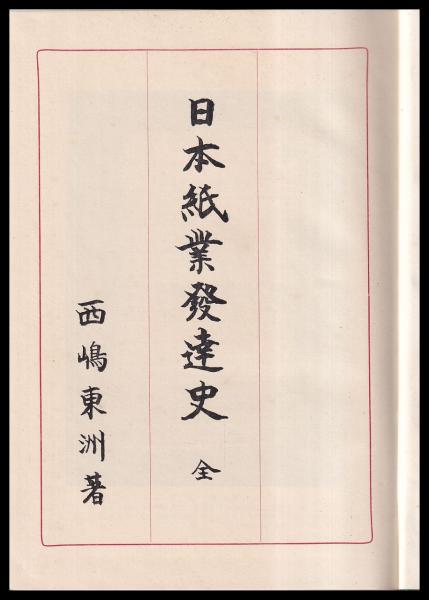 日本紙業發達史 全
西嶋東洲著